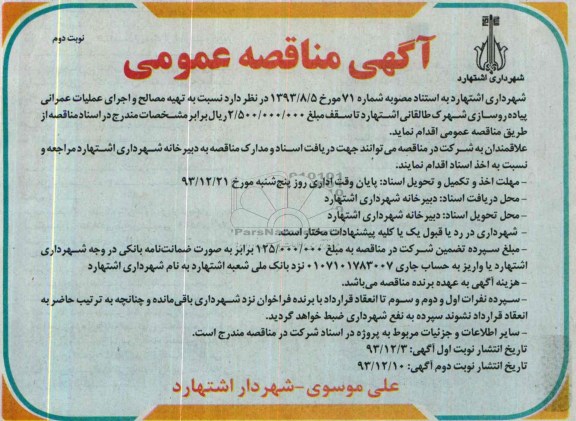 نوبت دوم
آگهی مناقصه عمومی
شهرداری اشتهارد
شهرداری اشتهارد به استناد مصوبه شماره ۷۱ مورخ ۱۳۹۳/۸/۵ در نظر دارد نسبت به تهیه مصالح و اجرای عملیات عمرانی
پیاده روسازی شهرک طالقانی اشتهارد تا سقف مبلغ ۲/۵۰۰/۰۰۰/۰۰۰ ریال برابر مشخصات مندرج در اسناد مناقصه از
طریق مناقصه عمومی اقدام نماید.
علاقمندان به شرکت در مناقصه می‌توانند جهت دریافت اسناد و مدارک مناقصه به دبیرخانه شهرداری اشتهارد مراجعه و
نسبت به اخذ اسناد اقدام نمایند.
- مهلت اخذ و تکمیل و تحویل اسناد: پایان وقت اداری روز پنج‌شنبه مورخ ۹۳/۱۲/۲۱
- محل دریافت اسناد: دبیرخانه شهرداری اشتهارد
- محل تحویل اسناد: دبیرخانه شهرداری اشتهارد
- شهرداری در رد یا قبول یک یا کلیه پیشنهادات مختار است.
- مبلغ سپرده تضمین شرکت در مناقصه به مبلغ ۱۲۵/۰۰۰/۰۰۰ برابر به صورت ضمانت‌نامه بانکی در وجه شهرداری
اشتهارد یا واریز به حساب جاری ۰۱۰۷۱۰۱۷۸۳۰۰۷ نزد بانک ملی شعبه اشتهارد به نام شهرداری اشتهارد
- هزینه آگهی به عهده برنده مناقصه می‌باشد.
- سپرده نفرات اول و دوم و سوم تا انعقاد قرارداد با برنده فراخوان نزد شهرداری باقی‌مانده و چنانچه به ترتیب حاضر به
انعقاد قرارداد نشوند سپرده به نفع شهرداری ضبط خواهد گردید.
- سایر اطلاعات و جزئیات مربوط به پروژه در اسناد شرکت در مناقصه مندرج است.
تاریخ انتشار نوبت اول آگهی: ۹۳/۱۲/۳
تاریخ انتشار نوبت دوم آگهی: ۹۳/۱۲/۱۰
علی موسوی - شهردار اشتهارد